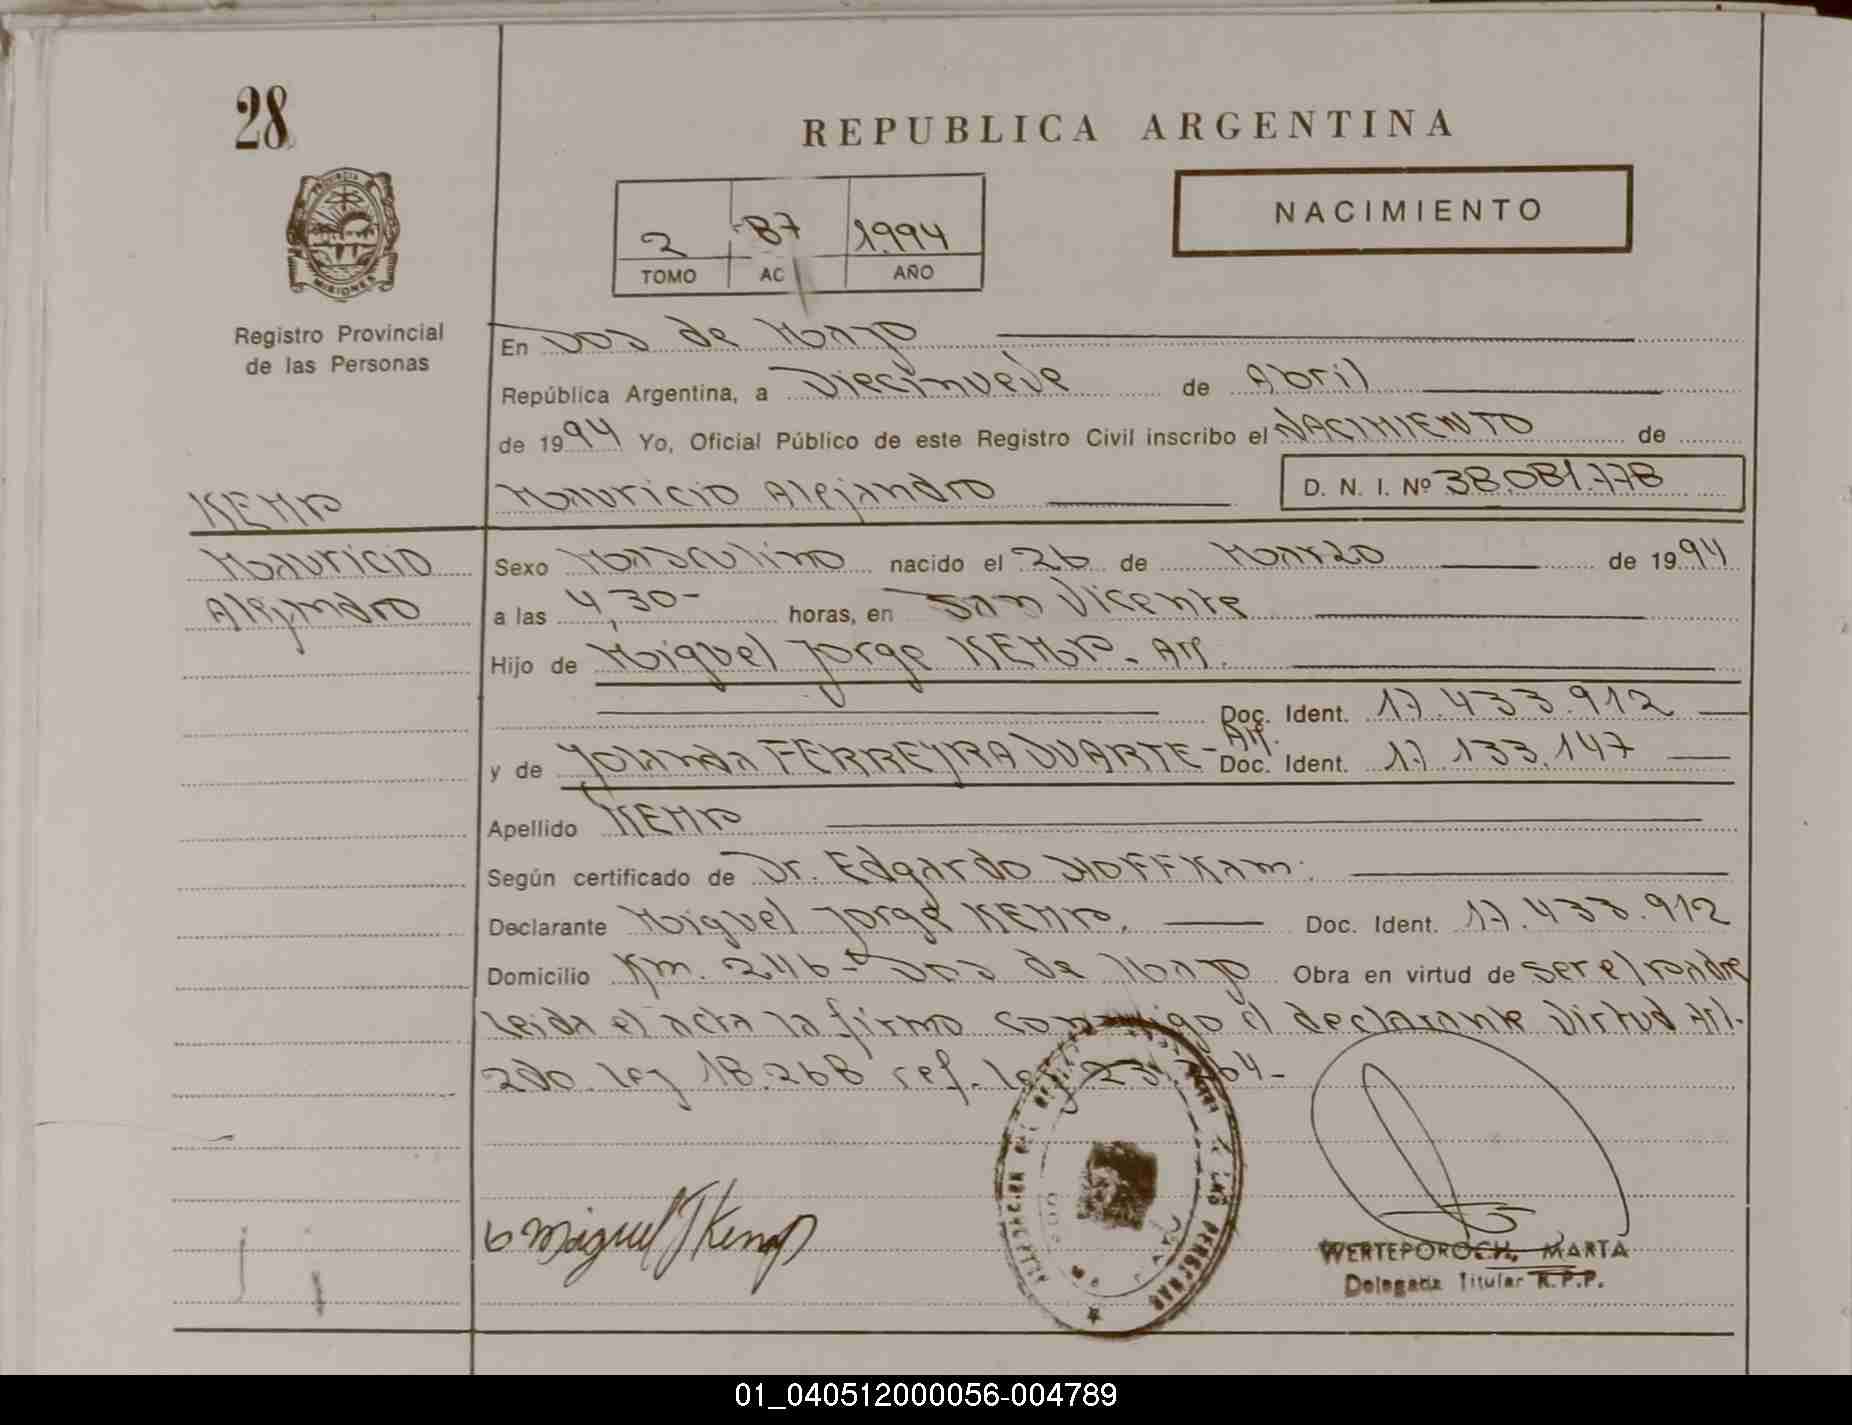 28
REPUBLICA ARGENTINA
PROVINCIA
MISIONES
Registro Provincial
de las Personas
NACIMIENTO
2 87 1994
TOMO AC AÑO
En Dos de Mayo
República Argentina, a Diecinueve de Abril
de 1994 Yo, Oficial Público de este Registro Civil inscribo el NACIMIENTO de
KEMP
Mauricio Alejandro D. N. I. Nº 38.081.778
Mauricio
Alejandro
Sexo Masculino nacido el 26 de Marzo de 1994
a las 4,30- horas, en San Vicente
Hijo de Miguel Jorge KEMP- Arg.
Doc. Ident. 17.433.912
y de Yolanda FERREYRA DUARTE- Arg. Doc. Ident. 17.133.147
Apellido KEMP
Según certificado de Dr. Edgardo HOFFKAM.
Declarante Miguel Jorge KEMP. Doc. Ident. 17.433.912
Domicilio Km. 246- Dos de Mayo Obra en virtud de ser el padre
leida el acta la firma conmigo el declarante Virtud Art.
2do. Ley 18.268 ref. Ley 23.264-
Miguel J Kemp
WERTEPOROCH, MARTA
Delegada Titular R.P.P.
01_040512000056-004789